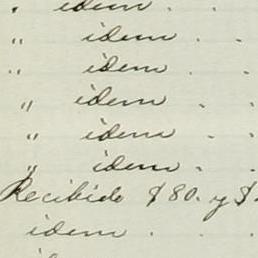 " idem . .
" idem . .
" idem . .
" idem . .
" idem . .
" idem . .
Recibido $80. y $.
idem . . .